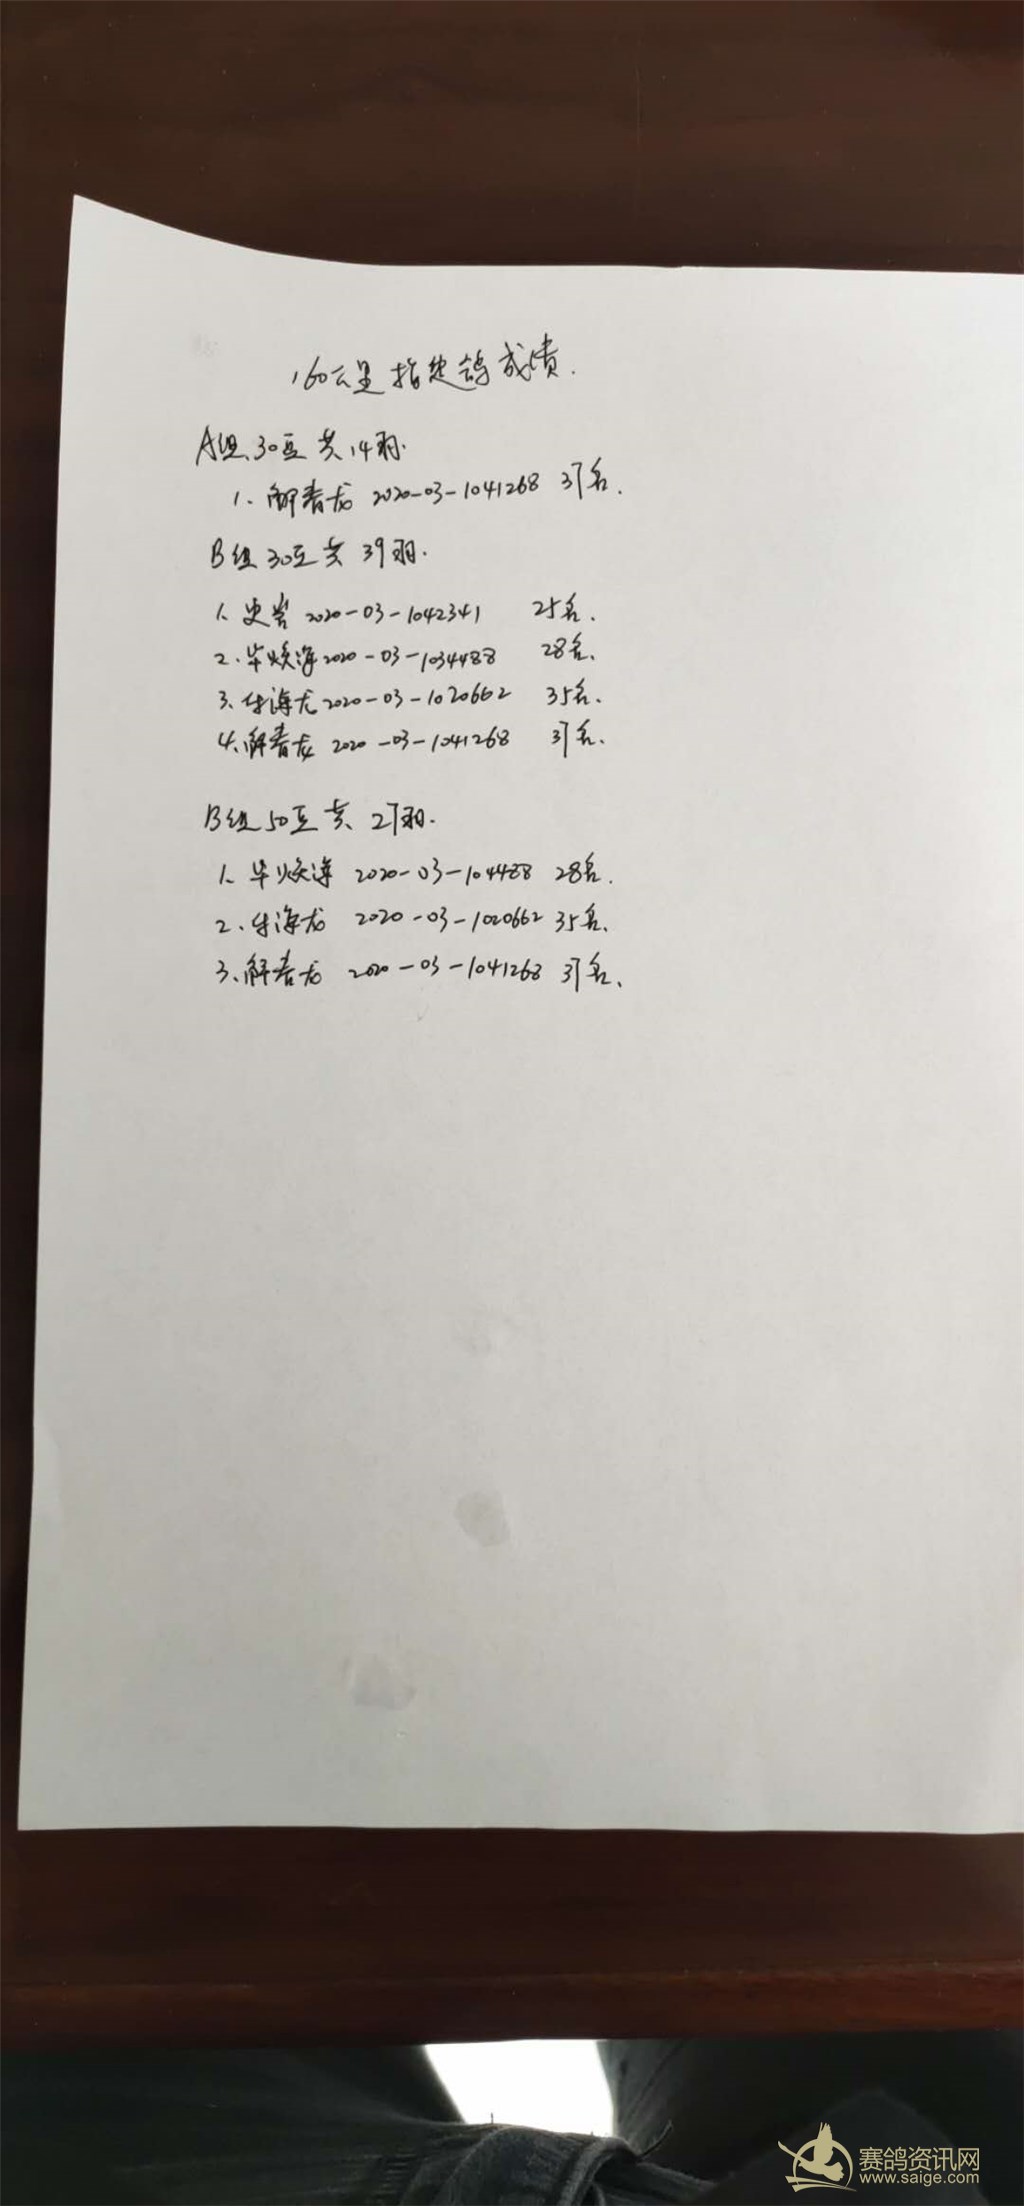 160公里指定鸽成绩.
A组30豆共14羽.
1、解春龙 2020-03-1041268 37名.
B组30豆共39羽.
1、史岩 2020-03-1042341 25名.
2.毕焕海 2020-03-1034488 28名.
3、付海龙 2020-03-1020662 35名.
4、解春龙 2020-03-1041268 37名.
B组50豆共27羽.
1、毕焕海 2020-03-104488 28名.
2、付海龙 2020-03-1020662 35名.
3、解春龙 2020-03-1041268 37名.
赛鸽资讯网
www.saige.com